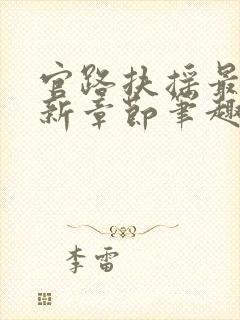 官路扶摇最
新章节笔趣
李雷